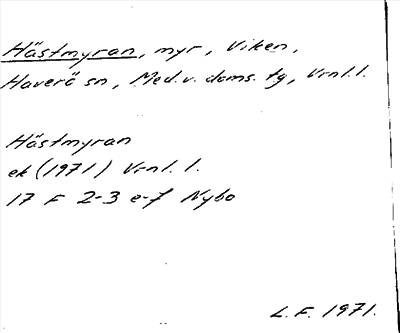 Hästmyran, myr, Viken,
Haverö sn, Med.v. doms. tg, Vrnl. l.
Hästmyran
ek (1971) Vrnl. l.
17 F 2-3 e-f Nybo
L.F. 1971.